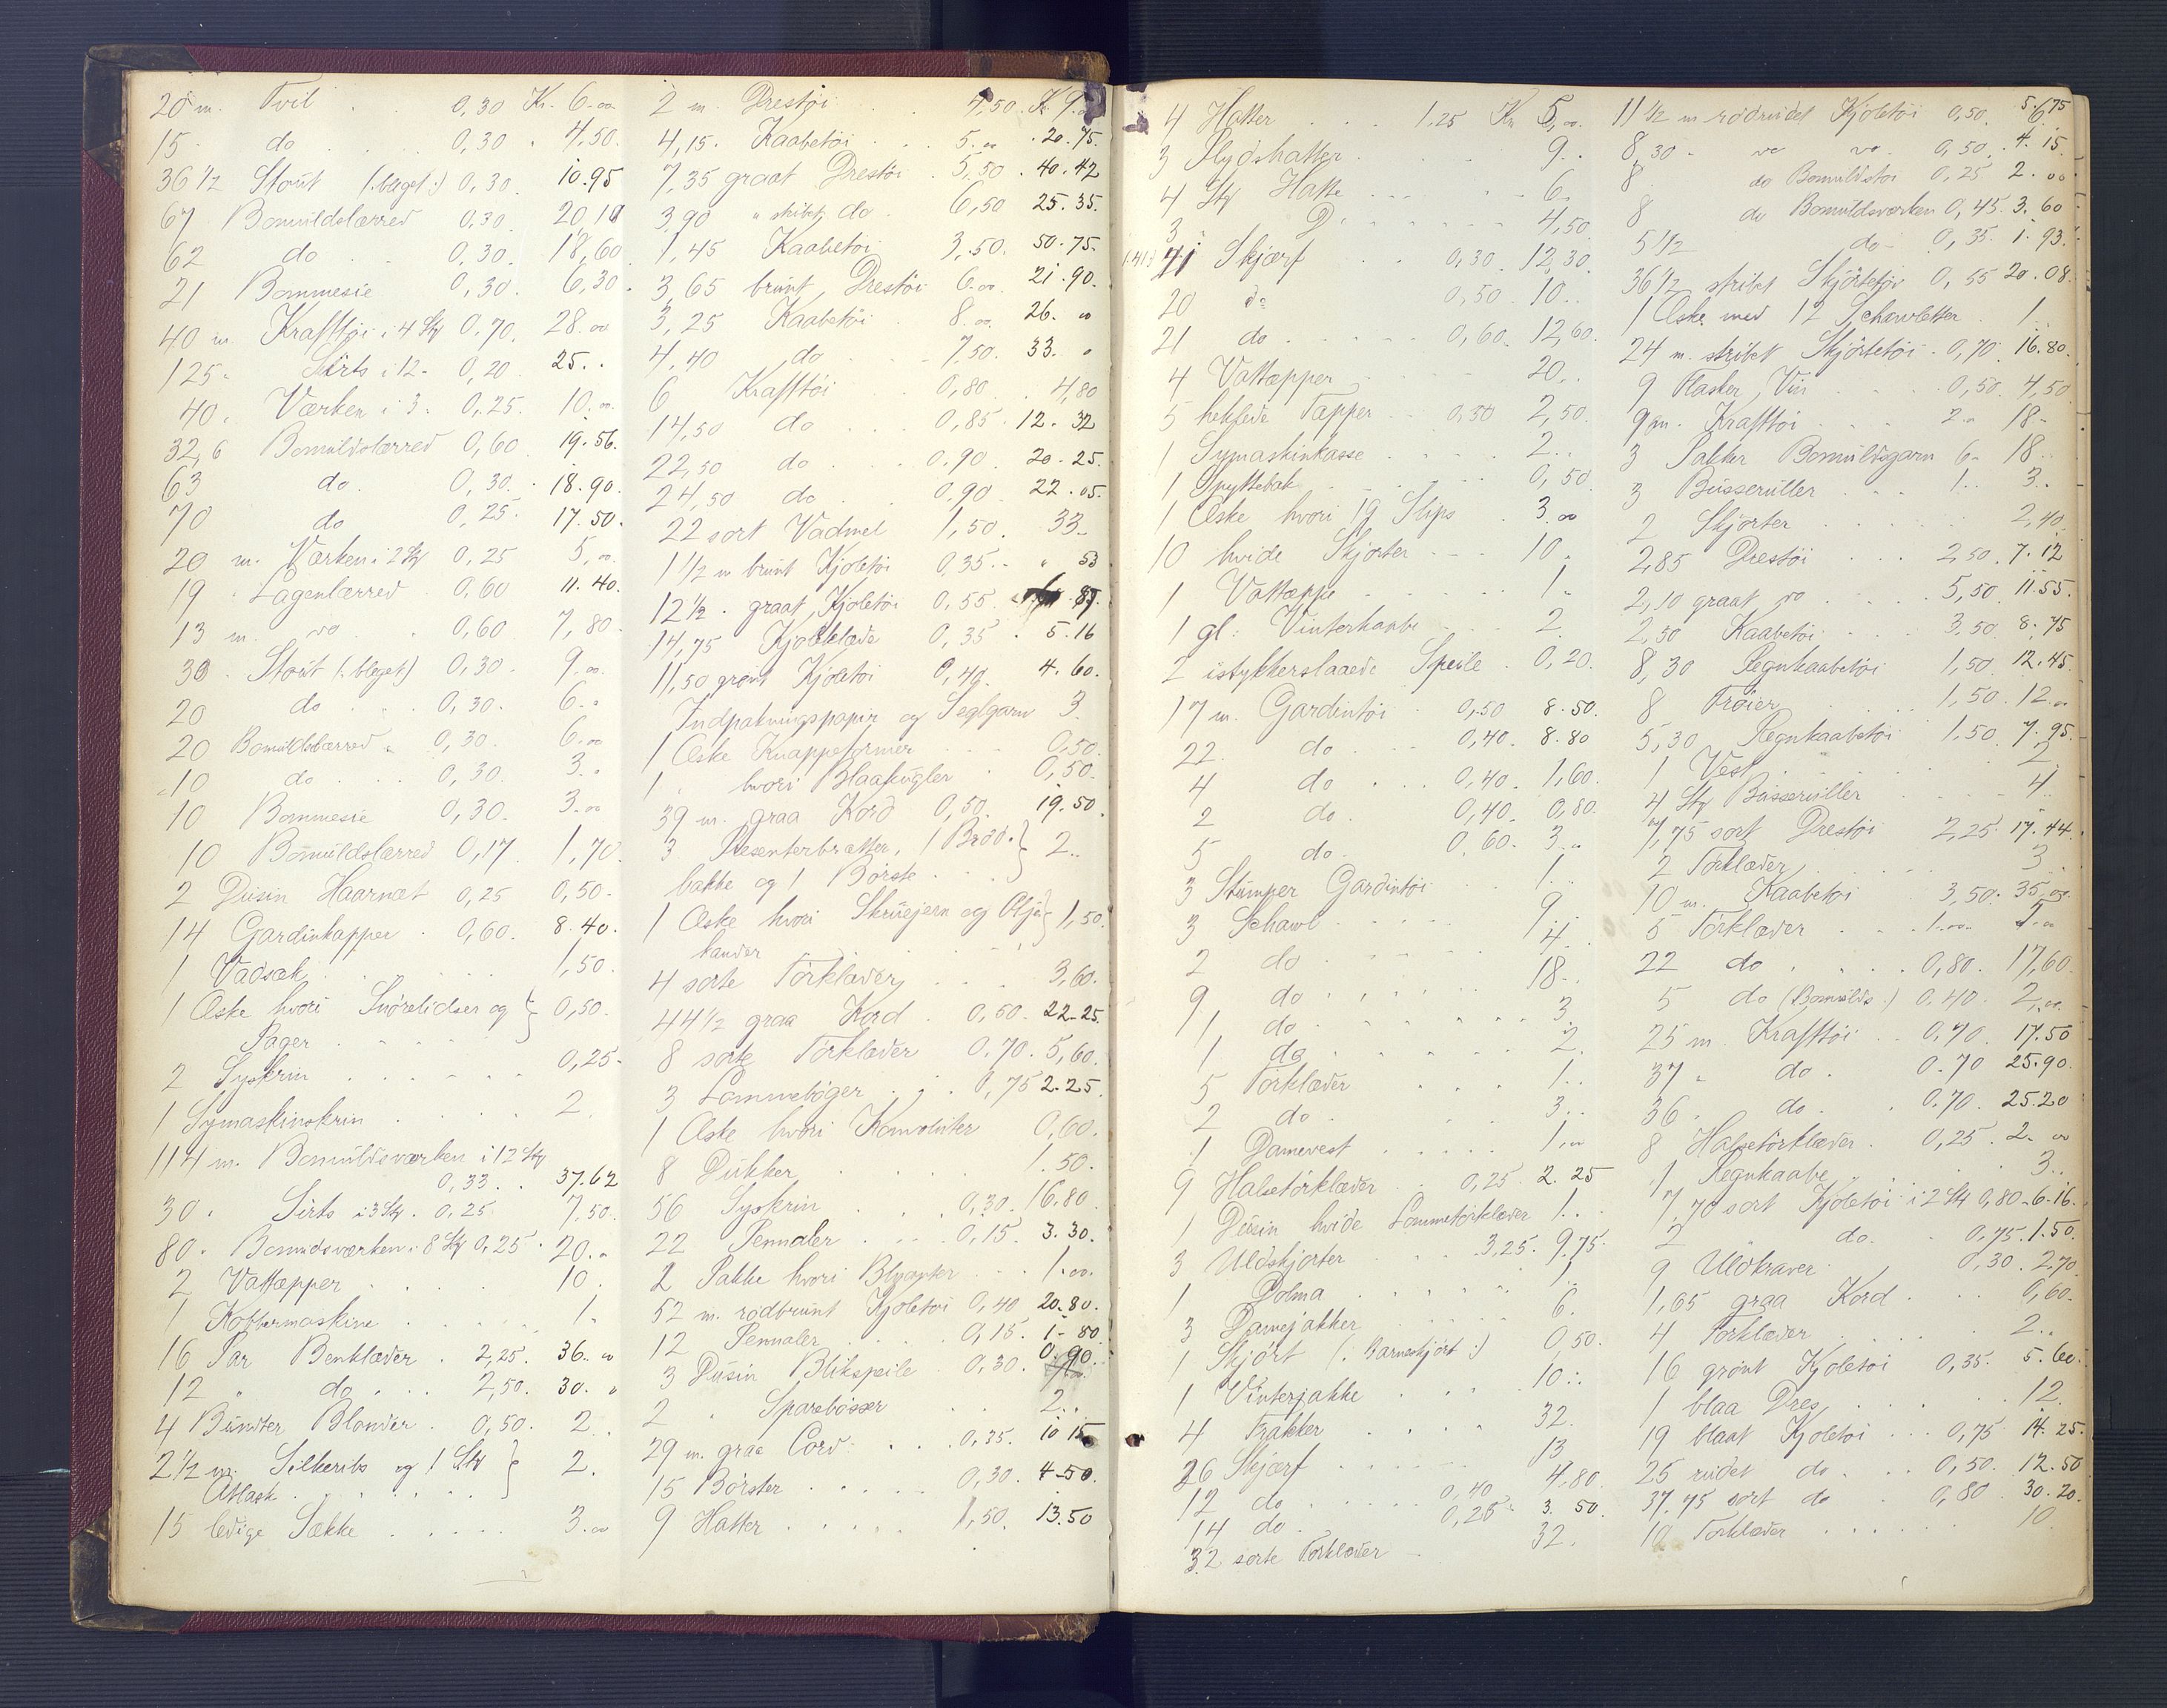 20 m. Tvil . . 0,30 Kr. 6.00
15 . do . . . 0,30 . 4,50.
36 1/2 Stout (: bleget :) 0,30. 10.95
67 Bomuldslærred 0,30. 20,10
62 do . . 0,30. 18,60
21 Bommesie 0,30. 6,30.
40 m. Krafttøi i 4 Stk 0,70. 28.00
125 " Sirts i 12 - 0,20 25..
40 . Værken i 3 . 0,25. 10.00
32,6 Bomuldslærred 0,60 19.56.
63 do . 0,30. 18.90.
70 do 0,25. 17.50.
20 m. Værken i 2 Stk 0,25 5,00
19 . Lagenlærred . 0,60 11.40.
13 m. do . 0,60 7,80.
30 . Stout (: bleget) 0,30. 9.00
20 do . . . 0,30. 6..
20 Bomuldslærred . 0,30. 6.00
10 do . . . 0,30. 3..
10 Bommesie 0,30. 3.00
10 Bomuldslærred 0,17. 1,70.
2 Dusin Haarnæt 0,25 0,50.
14 Gardinkapper . 0,60. 8.40.
1 Vadsæk . . . . . 1,50.
1 Æske hvori Snørelidser og } 0,50.
Pager . . . . .
2 Syskrin . . . . . . 0,25.
1 Symaskinskrin . . . . 2.
114 m. Bomuldsværken i 12 Stk
0,33 . . 37.62
30 . Sirts i 3 Stk . 0,25 7,50.
80 . Bomuldsværken i 8 Stk 0,25 . 20..
2 Vattæpper . . . . . 10.
1 Koffermaskine . . . . . 1.
16 Par Benklæder . 2,25. 36.00
12 " do . . . 2,50. 30.
4 Bundter Blonder . 0,50. 2..
2 1/2 m. Silkeribs og 1 Stk } 2.
Atlask . . . . . . .
15 ledige Sække . . . . . 3.00
2 m. Drestøi . . 4,50. Kr. 9.
4,15. Kaabetøi . . . 5.00 . 20.75.
7,35 graat Drestøi . 5,50 . 40.42
3,90 " stribet do . 6,50 25.35.
1,45 Kaabetøi 3,50. 50.75.
3,65 brunt Drestøi 6.00 21.90.
3,25 Kaabetøi . 8.00 26.00
4,40 do . . . 7,50. 33.
6 Krafttøi . . 0,80 . 4,80
14,50 do . . . 0,85. 12.32
22,50 do . . . 0.90. 20.25.
24,50 do . 0,90 22.05.
22 sort Vadmel 1,50. 33..
1 1/2 m brunt Kjoletøi 0,35.. " 53
12 1/2 . graat Kjoletøi 0,55 . 87.
14,75 Kjoleklæde 0,35 . 5.16
11,50 grønt Kjoletøi 0,40. 4.60.
Indpakningspapir og Seglgarn 3.
1 Æske Knappeformer . . . 0,50.
1 " hvori Blaakugler . 0,50.
39 m. graa Kord 0,50. 19.50.
3 Presenterbrætter, 1 Brød- } 2..
bakke og 1 Børste . . .
1 Æske hvori Skruejern og Olje- } 1,50.
kander . . . . .
4 sorte Tørklæder . . . 3,60.
44 1/2 graa Kord . 0,50. 22.25.
8 sorte Tørklæder 0.70. 5,60.
3 Lommebøger . . . 0,75 2.25.
1 Æske hvori Konvolutter 0,60.
8 Dukker . . . . . 1.50.
56 Syskrin . . . 0,30. 16.80.
22 Pennaler . . . 0,15. 3.30.
2 Pakke hvori Blyanter . . . 1.00.
52 m. rødbrunt Kjoletøi 0,40 20.80.
12 Pennaler . . . . 0,15. 1.80.
3 Dusin Blikspeile 0,30. 0.90.
2 " Sparebøsser . . 2..
29 m. graa Cord . . . 0,35. 10 15
15 Børster . . . . . 0,30. 4.50.
9 Hatter . . . . . 1,50. 13.50
4 Hatter . . . 1.25 Kr 5,00.
3 Flyøshatter . . . . 9..
4 Stk Hatte . . . . . 6.
3 D. . . . . . . 4,50.
41 Skjærf . . 0,30. 12,30.
20 do 0,50. 10..
21 do . . . . . 0,60. 12,60.
4 Vattæpper . . . . 20..
5 heklede Tæpper . . 0,50 2,50.
1 Symaskinkasse . . . . 2..
1 Spyttebak . . . . . 0,50.
1 Æske hvori 19 Slips . 3.00
10 hvide Skjorter . . . 10.
1 Vattæppe . . . . . 1.
1 gl. Vinterkaabe . . . 2.
2 istykkerslaaede Speile . 0,20.
17 m. Gardintøi . 0,50 8.50.
22. do . . . 0,40. 8.80
4 do . . . 0,40. 1,60.
2 do . 0,40. 0,80.
5 do . 0.60. 3..
3 Stumper Gardintøi . . 1..
3 Schawl . . . . . 9.
2 do . . . . . 4..
9 do . . . . . . 18..
1 do . . . . . . 3.
1 do . . . . . . 2.
5 Tørklæder . . . . 1..
2 do . . . . . 3..
1 Damevest . . . . . 1.00
9 Halstørklæder . . 0,25. 2.25
1 Dusin hvide Lommetørklæder 1..
3 Uldskjorter . . 3,25. 9.75.
1 Dolma . . . . . 1.
3 Damejakker . . . . 6.
1 Skjørt (: Barneskjørt :) 0,50.
1 Vinterjakke . . . 10..
4 Frakker . . . . . 32.
26 Skjærf . . . . . 13
12 do . . . . . 0,40 4.80.
14 do . 0,25 3.50.
32 sorte Tørklæder . 32.
11 1/2 m rødrudet Kjoletøi 0,50. 5.75
8,30 . do do . 0,50 . 4.15.
8 do Bomuldstøi 0,25 2.00.
8 do Bomuldsværken 0,45. 3.60
5 1/2 do . 0,35. 1.93.
36 1/2 stribet Skjørtetøi 0,55 20.08.
1 Æske med 12 Schawletter . 1..
24 m. stribet Skjørtetøi . 0,70 16.80.
9 Flasker Vin . . . . 0,50. 4,50.
9 m. Krafttøi . . . . 2.. 18.
3 Pakker Bomuldsgarn 6.. 18..
3 Busseruller . . . 1.. 3..
2 Skjorter . . . . . . 2,40.
2,85 Drestøi . . . 2,50. 7.12
2,10 graat do . . . . 5,50 11.55.
2,50 Kaabetøi . . . 3.50 8.75
8,30 Regnkaabetøi 1,50. 12.45.
8 Trøier . . . . 1,50. 12.00
5,30 Regnkaabetøi 1,50 7.95.
1 Vest . . . . . . 2
4 Stk Busseruller . . . . 4..
7,75 sort Drestøi 2,25. 17.44.
2 Tørklæder . . . . . . 3.
10 m. Kaabetøi . . 3,50. 35,00.
5 Tørklæder . . . 1.00.. 5.00
22 do . . . . 0,80. 17,60.
5 do (Bomulds :) 0,40. 2,00.
25 m. Krafttøi . . 0,70. 17.50
37 " do . 0.70 25.90.
36 . do . . 0.70. 25.20
8 Halstørklæder . 0,25. 2.00
1 Regnkaabe . . . . . 3..
7,70 sort Kjoletøi i 2 Stk 0,80. 6.16.
2 do . . 0,75. 1.50.
9 Uldkraver . . . 0,30. 2.70.
1,65 graa Kord . . . 0,60.
4 Tørklæder . . . . . 2..
16 grønt Kjoletøi 0,35. 5.60.
1 blaa Dres . . . . . 12.
19 blaat Kjoletøi . . . 0,75. 14.25.
25 rudet do . . . 0,50. 12.50
37,75 sort do . 0,80 30.20.
10 Tørklæder . . . . . . 10.